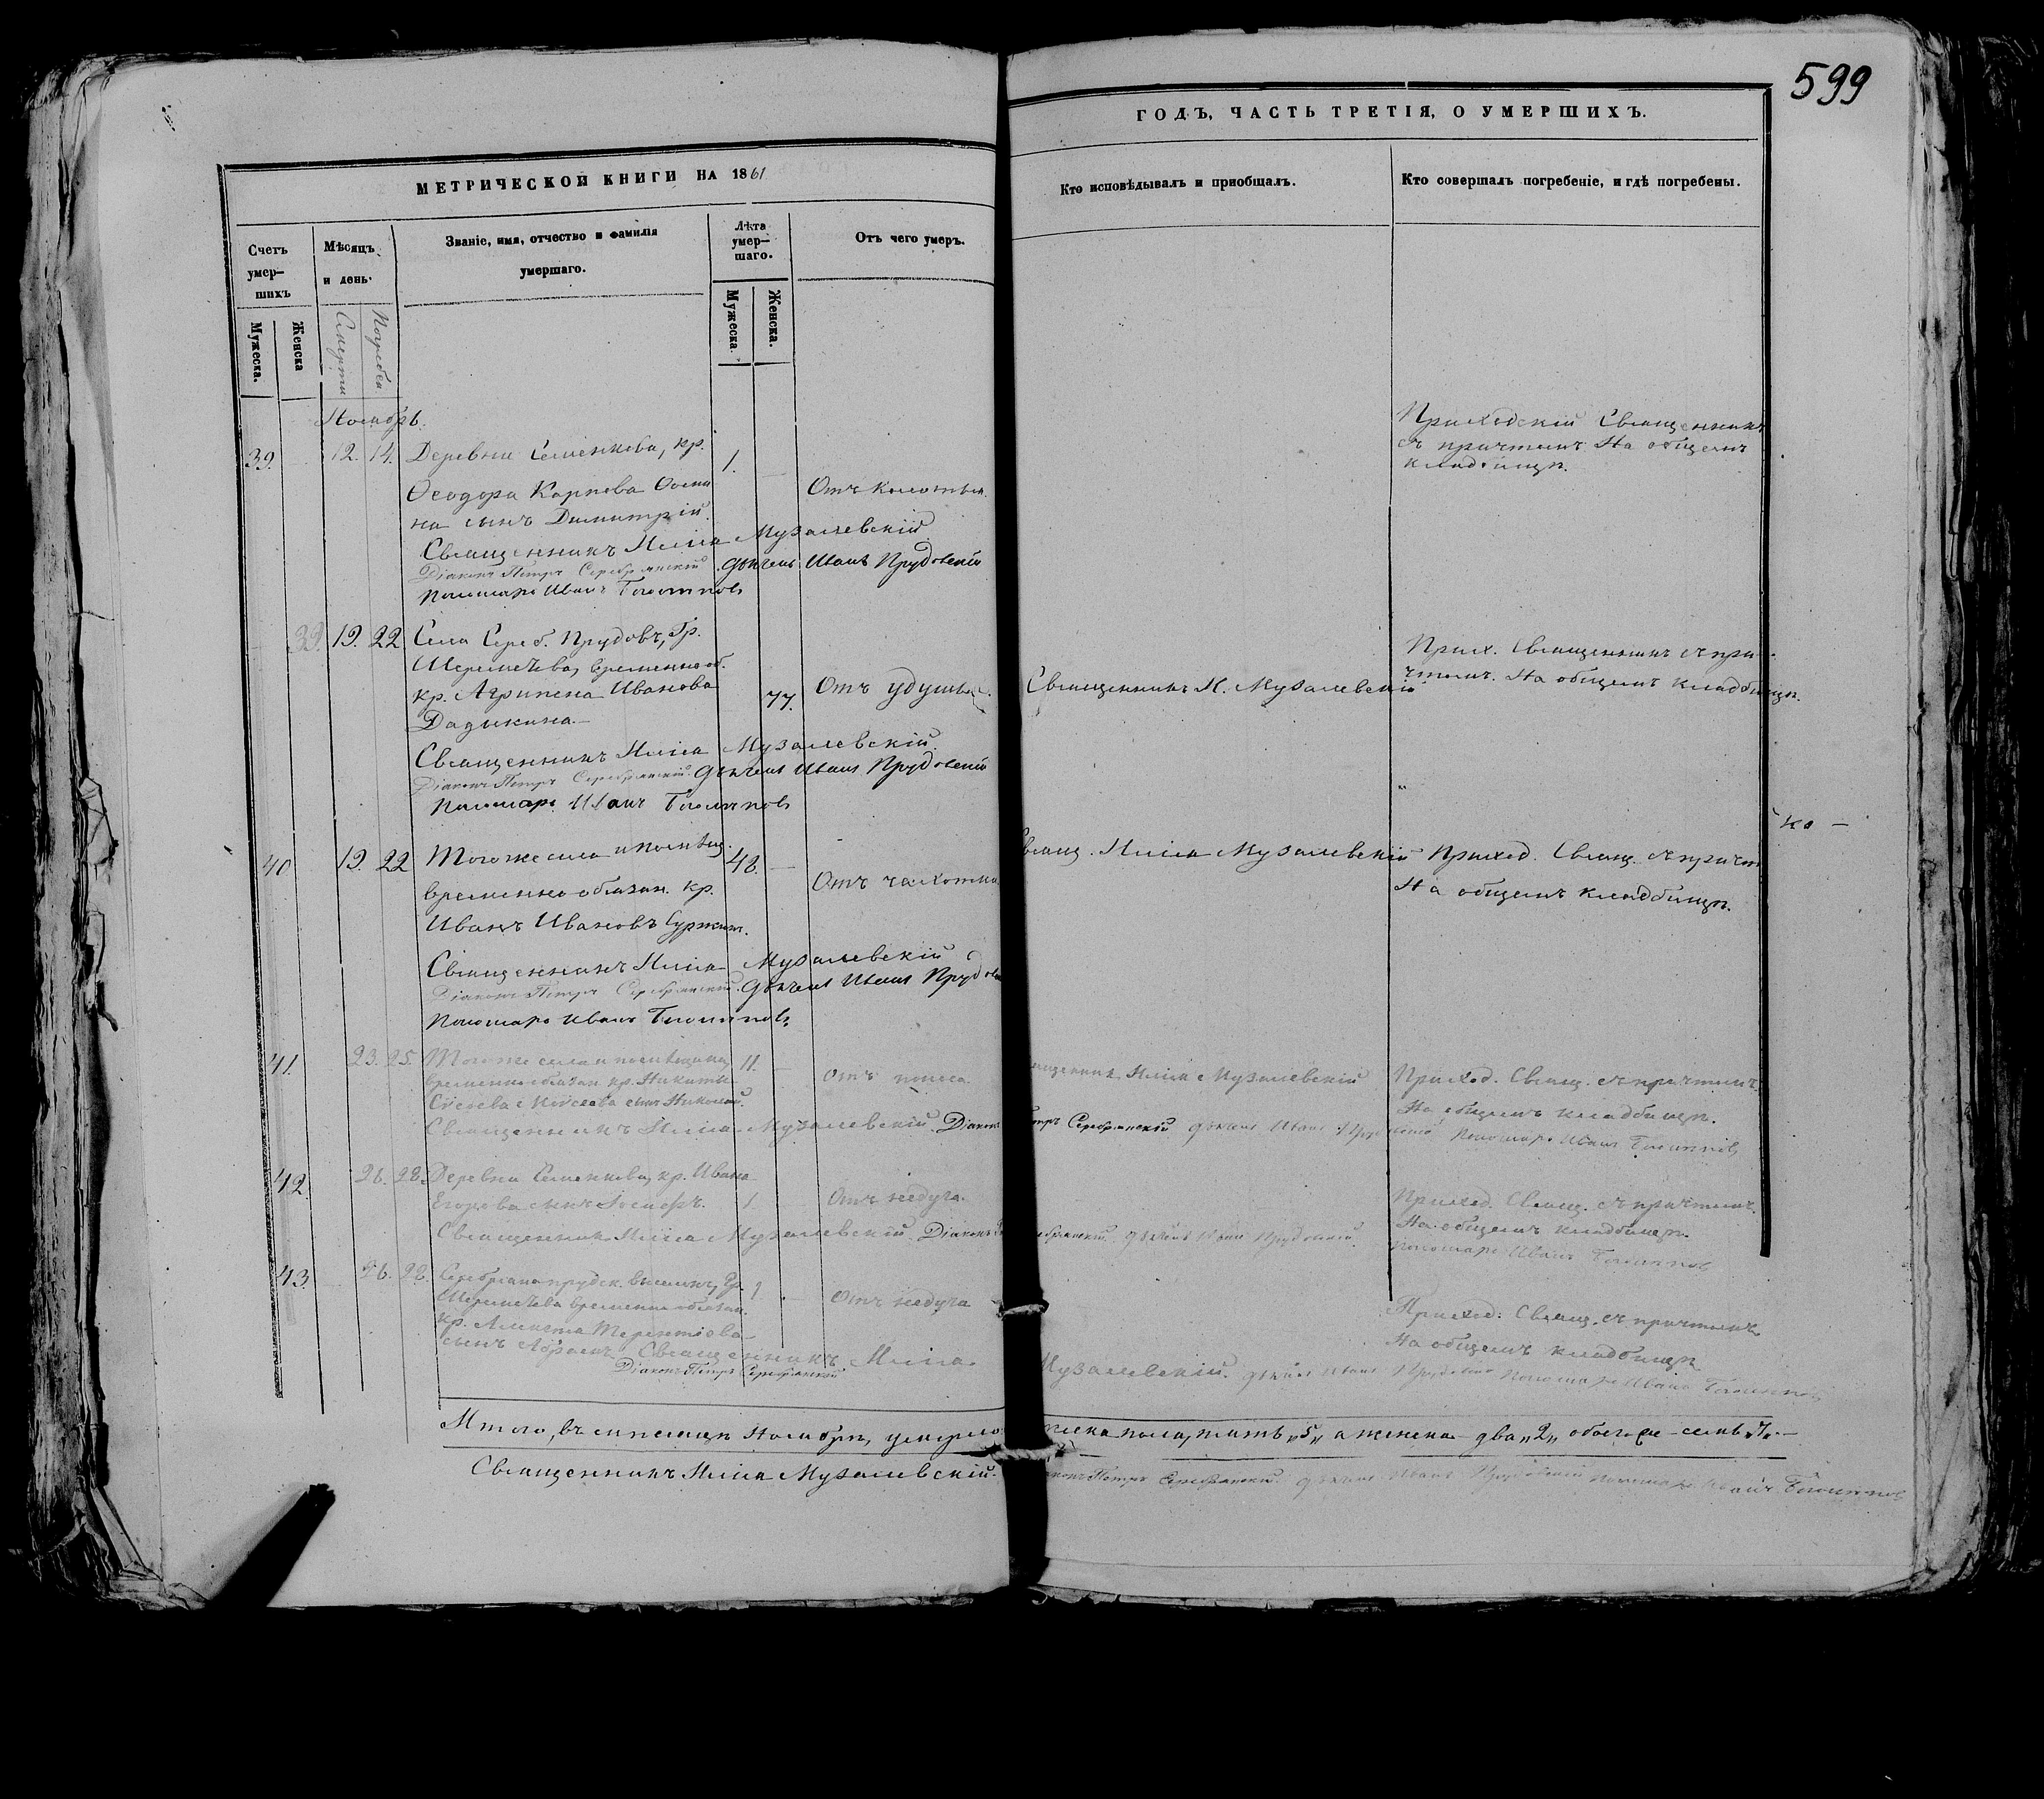 599
МЕТРИЧЕСКОЙ КНИГИ НА 1861
ГОДЪ, ЧАСТЬ ТРЕТІЯ, О УМЕРШИХЪ.
Счетъ умер-шихъ
Мѣсяцъ и день.
Званіе, имя, отчество и фамилія умершаго.
Лѣта умер-шаго.
Отъ чего умеръ.
Кто исповѣдывалъ и приобщалъ.
Кто совершалъ погребеніе, и гдѣ погребены.
Мужеска.
Женска
Смерти
Погребен
Мужеска.
Женска.
Ноябрь.
39. 12. 14. Деревни Семенкова, кр. 1.
Ѳеодора Карпова
на сынъ Димитрій.
Отъ колотья.
Приходскій Священникъ
съ причтомъ На общемъ
кладбищѣ.
Священникъ Илія Музалевскій
Діаконъ Петръ Серебрянскій. Дьячекъ Иванъ Прудовскій
Пономарь Иванъ
39. 19. 22 Села Сереб. Прудовъ, Гр.
Шереметева, временно об.
кр. Агрипена Иванова
Дадыкина.
77. Отъ удушья.
Священникъ И. Музалевскій
Прих. Священникъ съ при-
чтомъ. На общемъ кладбищѣ.
Священникъ Илія Музалевскій.
Діаконъ Петръ Серебрянскій. Дьячекъ Иванъ Прудовскій
Пономарь Иванъ
40 19. 22 Тогоже села и помѣщ. 48.
временно обязан. кр.
Иванъ Ивановъ
Отъ чахотки
Свящ. Илія Музалевскій
Приход. Свящ. съ причт
На общемъ кладбищѣ.
Священникъ Илія Музалевскій
Діаконъ Петръ Серебрянскій. Дьячекъ Иванъ
Пономарь Иванъ
41. 23. 25. Тогоже села и помѣщика 11.
временно обязан. кр. Никиты
Моисеева сынъ Николай.
Отъ поноса
Илія Музалевскій
Приход. Свящ. съ причтомъ.
На общемъ кладбищѣ.
Священникъ Илія Музалевскій. Діаконъ Петръ Серебрянскій дьячекъ Иванъ Прудовскій Пономарь Иванъ
42. 26. 28. Деревни Семенкова, кр. Ивана
Егорова сынъ Іосифъ. 1. Отъ недуга.
Приход. Свящ. съ причтомъ.
На общемъ кладбищѣ.
Священникъ Илія Музалевскій. Діаконъ дьячекъ Иванъ Прудовскій.
Пономарь Иванъ
43. 26. 28. Серебряно прудск. выселокъ, Гр. 1.
Шереметева временно обязан.
кр. Терентіева
сынъ
Отъ недуга
Приход. Свящ. съ причтомъ.
На общемъ кладбищѣ
Священникъ Илія Музалевскій. дьячекъ Иванъ Прудовскій Пономарь Иванъ
Діаконъ Петръ Серебрянскій
Итого, въ ноябрѣ, умерло пола, пять „5„ а женска два „2„ обоего семь „7„.
Священникъ Илія Музалевскій. Петръ Серебрянскій. дьячекъ Иванъ Прудовскій пономарь